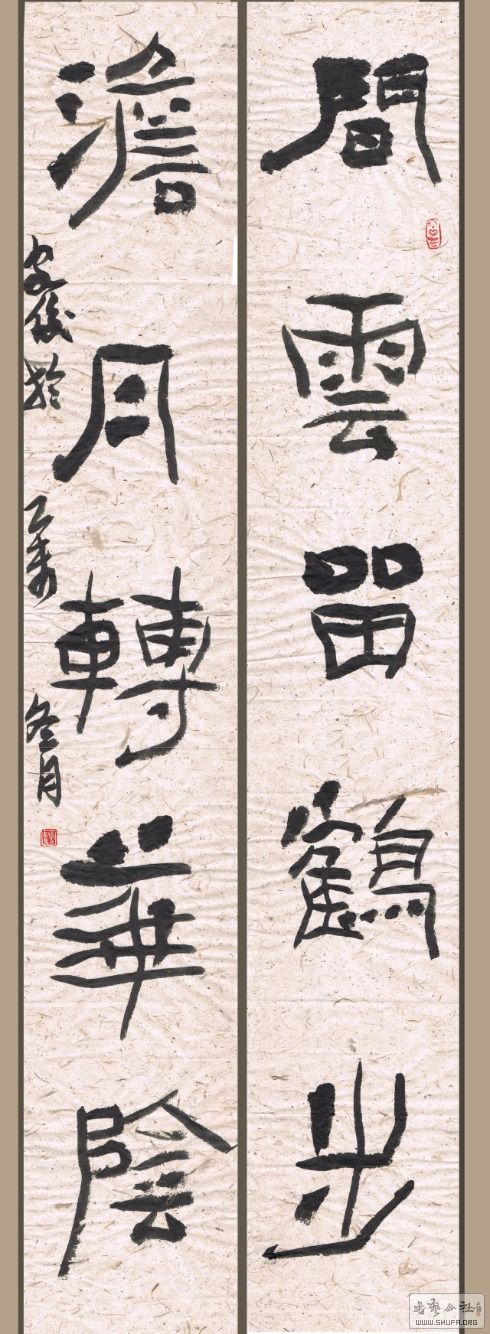 間雲留鶴步
澹月轉華陰
安俊於乙未冬月
書藝公社
WWW.SHUFA.ORG